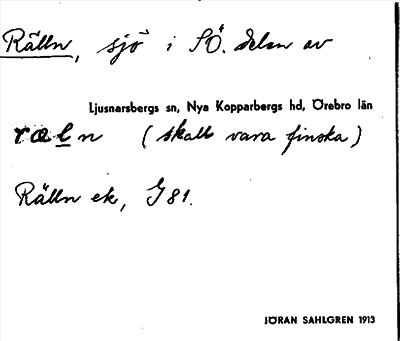 Rälln, sjö i SÖ. delen av
Ljusnarsbergs sn, Nya Kopparbergs hd, Örebro län
ræln (skall vara finska)
Rälln ek, G 81.
JÖRAN SAHLGREN 1913